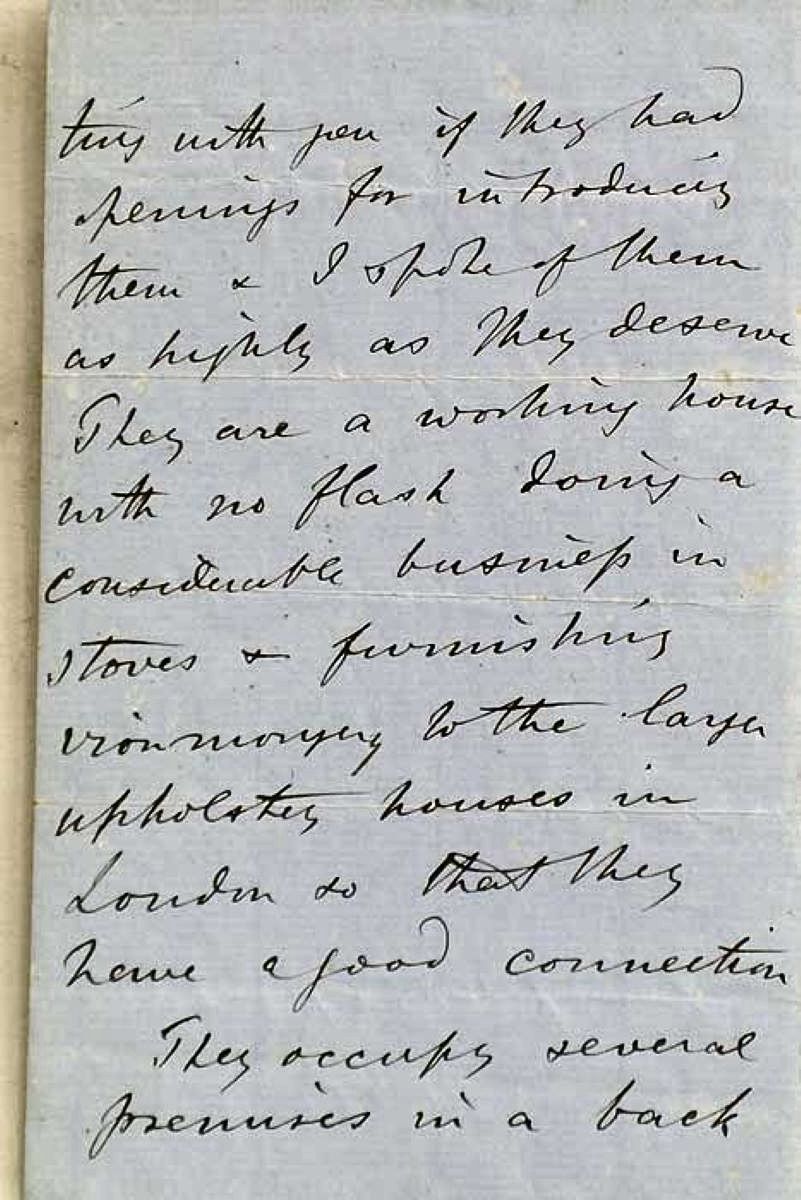 ting with you if they had
openings for introducing
them & I spoke of them
as highly as they deserve
They are a working house
with no flash doing a
considerable business in
stoves & furnishing
ironmongery to the larger
upholstery houses in
London so that they
have a good connection
They occupy several
premises in a back